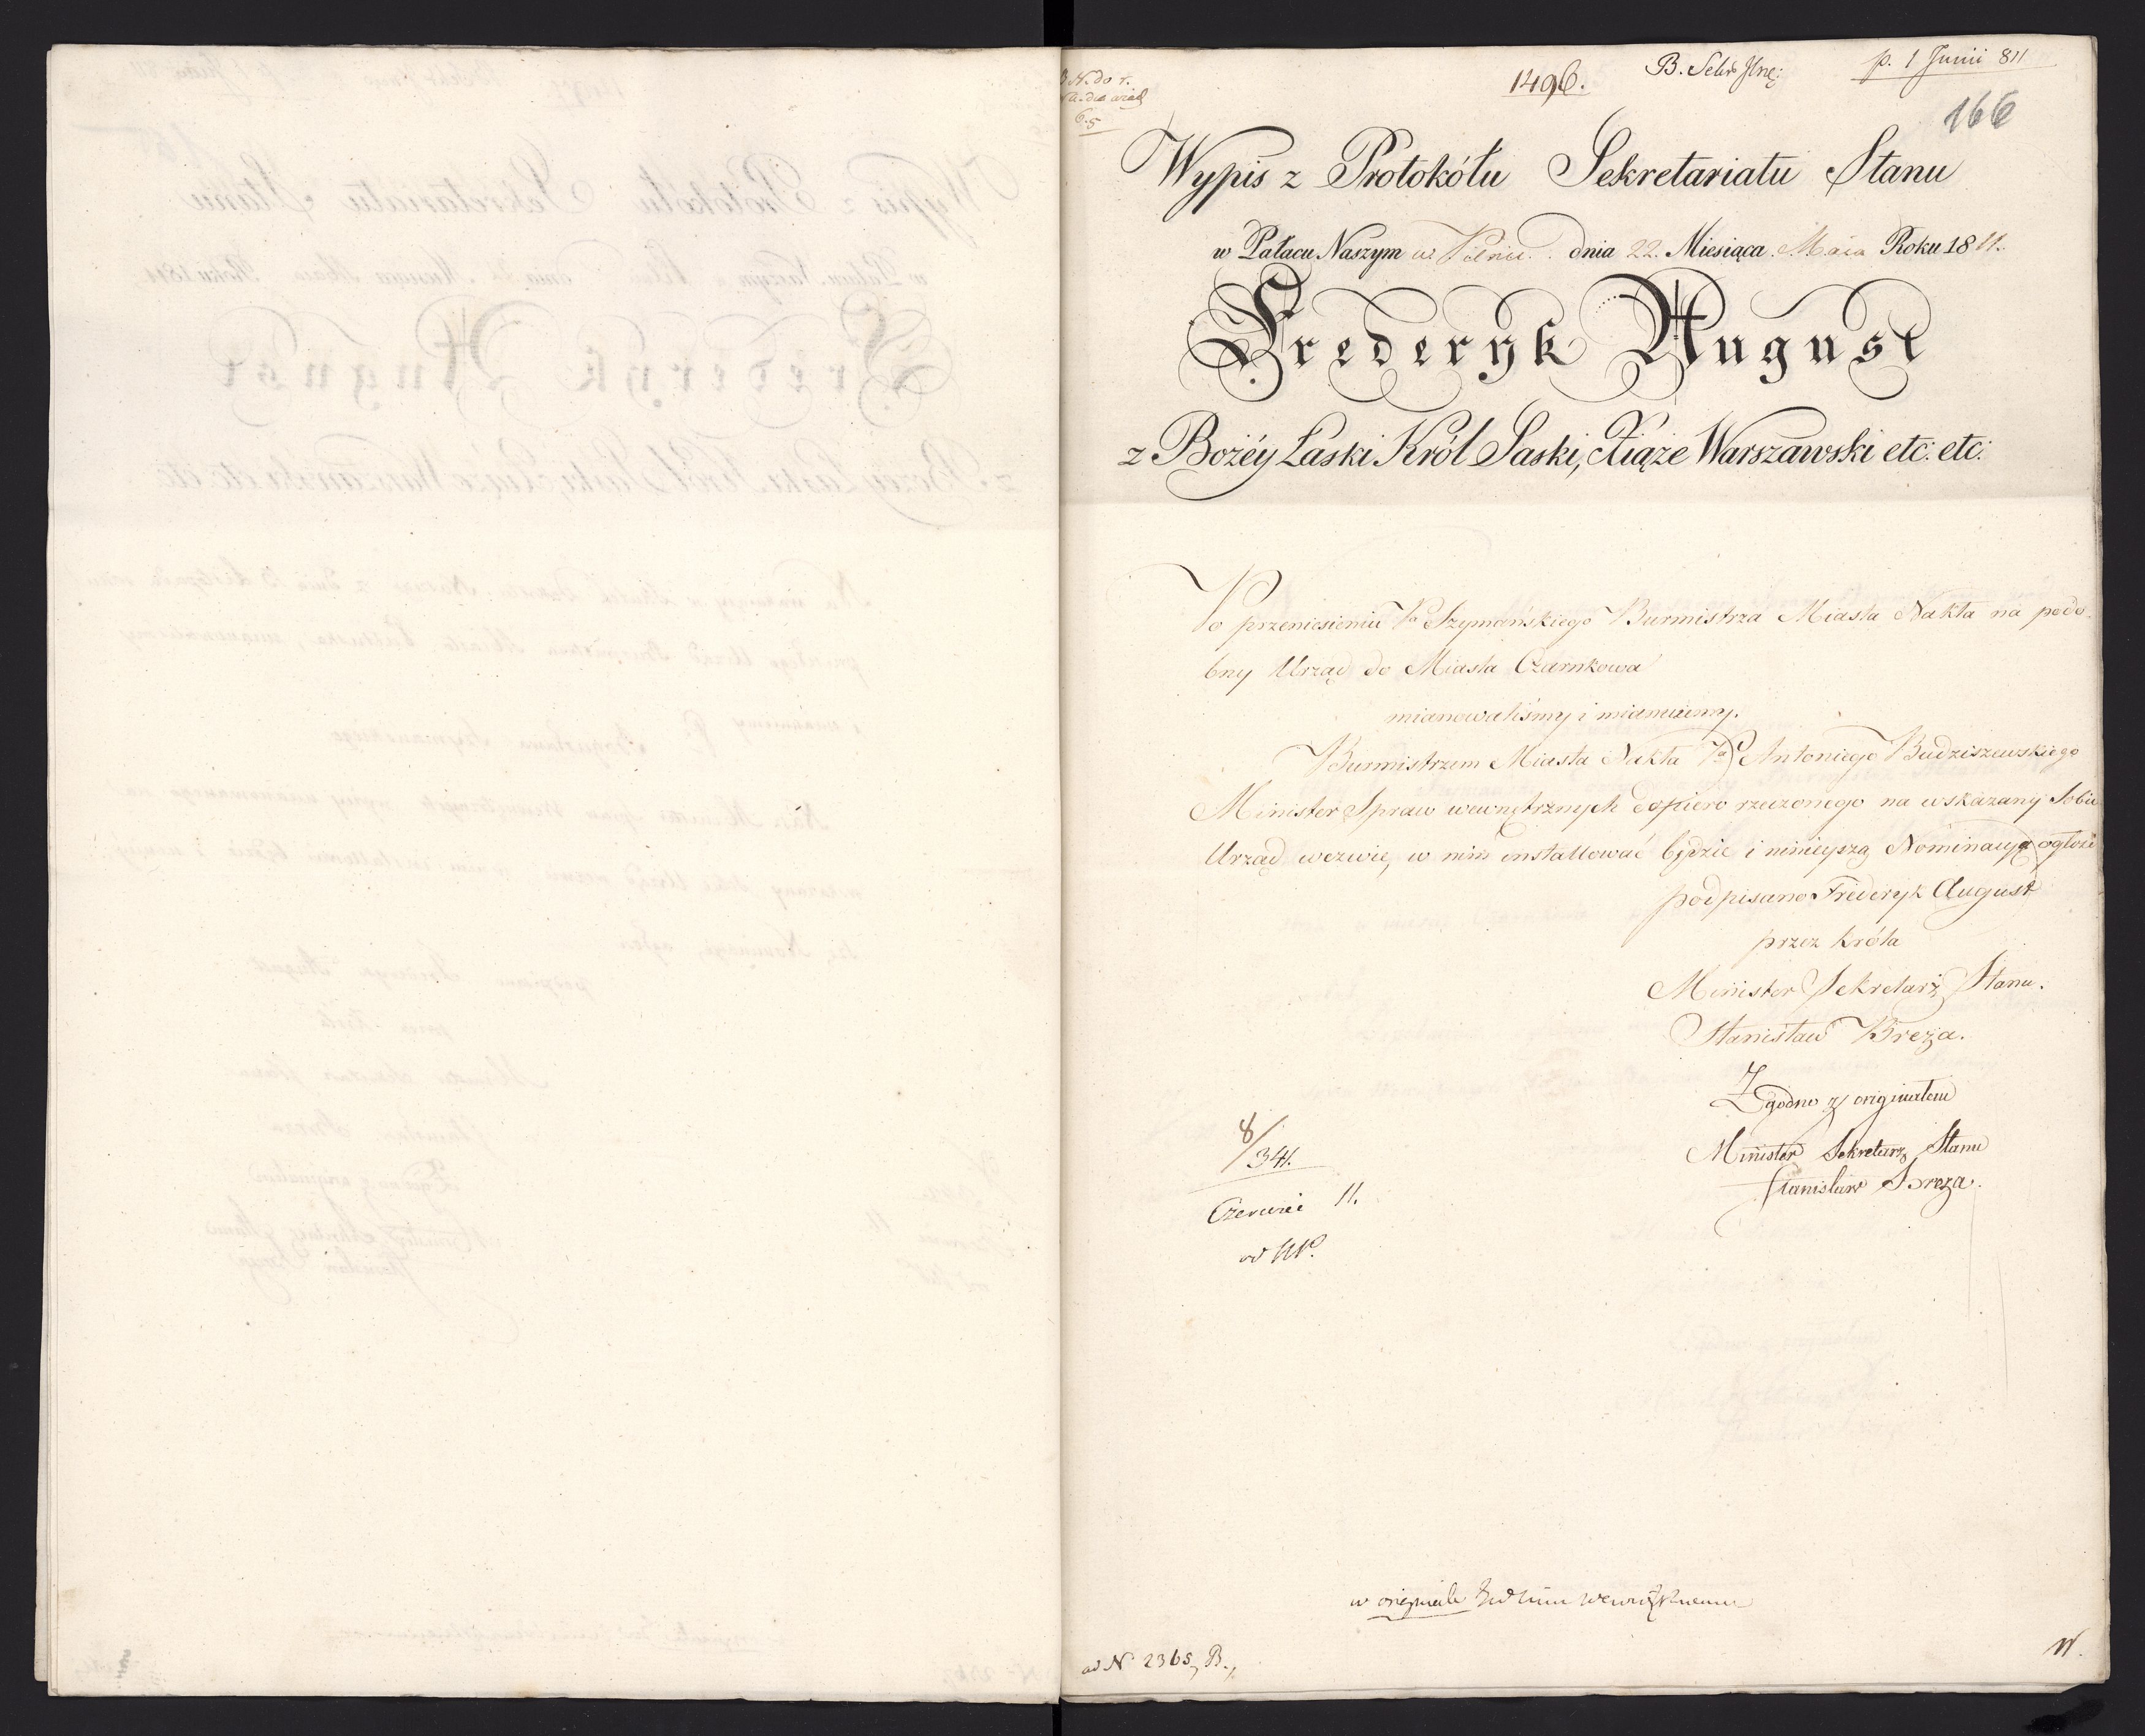 1496.
p. 1 Junii 811
166
Wypis z Protokółu Sekretariatu Stanu
w Pałacu Naszym w Pilnic. dnia 22. Miesiąca Maia Roku 1811.
Frederyk August
z Bożéy Łaski Król Saski, Xiąże Warszawski etc: etc:
Po przeniesieniu Pa Szymańskiego Burmistrza Miasta Nakła na podo-
bny Urząd do Miasta Czarnkowa
mianowaliśmy i mianuiemy.
Burmistrzem Miasta Nakła Pa Antoniego Budziszewskiego
Minister Spraw wewnętrznych dopiero rzeczonego na wskazany Sobie
Urząd wezwie, w nim installować będzie i ninieyszą Nominacyą ogłosi
podpisano Frideryk August
przez Króla
Minister Sekretarz Stanu.
Stanisław Breza.
Zgodno z originałem
Minister Sekretarz Stanu
Stanisław Breza.
8/341.
Czerwiec 11.
w originale
ad N 2365, B.